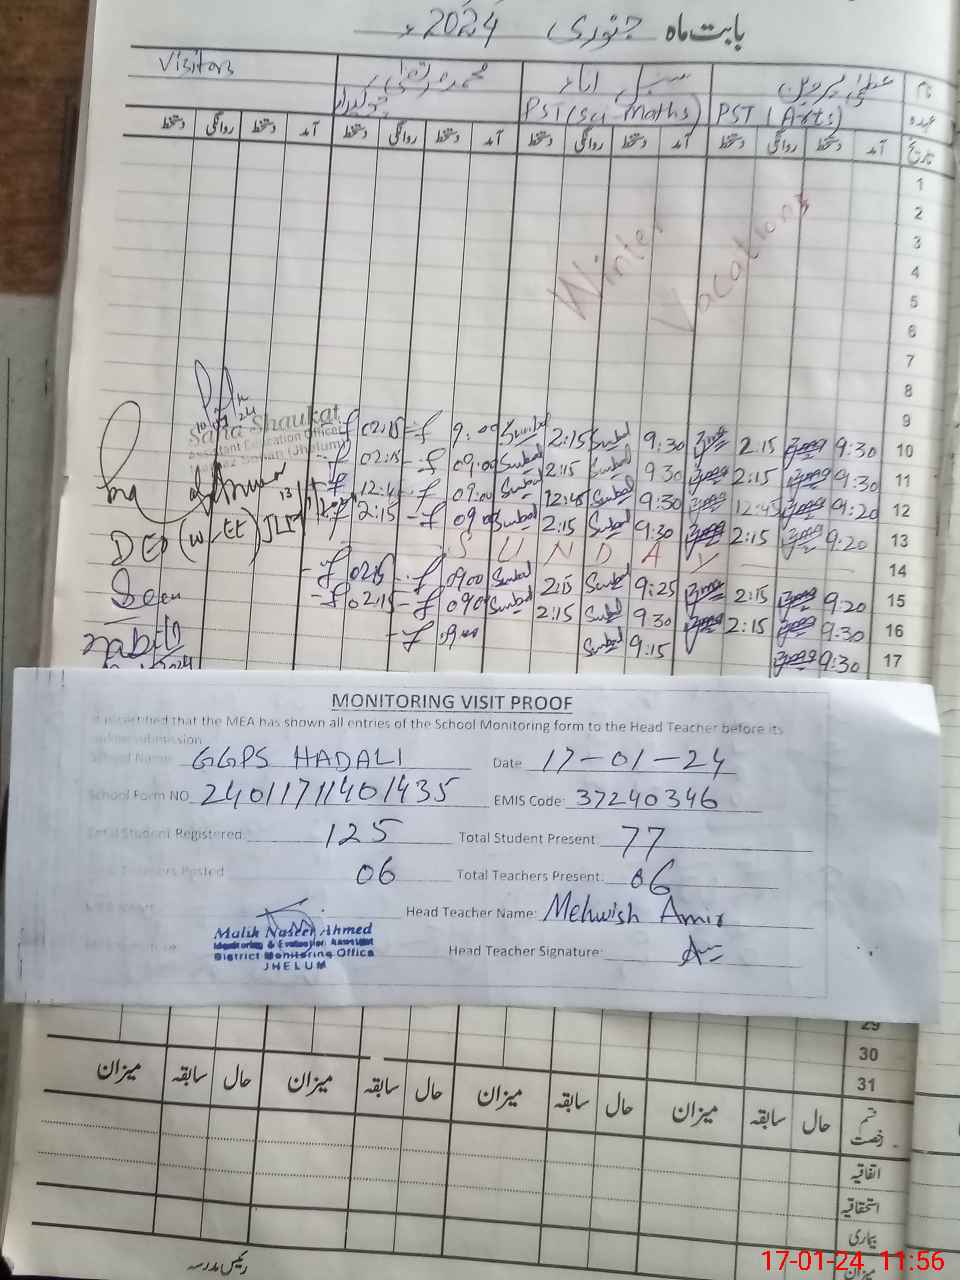 بابت ماہ جنوری 2024ء
Visitors
نام
PST (Sci-Maths) PST (Arts) عہدہ
دستخط روانگی دستخط آمد دستخط روانگی دستخط آمد دستخط روانگی دستخط آمد دستخط روانگی دستخط آمد تاریخ
1
2
3
4
5
6
7
8
Winter Vacations
9
Sana Shaukat
Assistant Education Officer
(Jhelum)
02:15 9:00 Sumbal 2:15 Sumbal 9:30 2:15 9:30 10
02:15 09:00 Sumbal 2:15 Sumbal 9:30 2:15 9:30 11
12:45 09:00 Sumbal 12:45 Sumbal 9:30 12:45 9:20 12
2:15 09:00 Sumbal 2:15 Sumbal 9:30 2:15 9:20 13
DEO (W-EE) JLM
S U N D A Y 14
02:15 09:00 Sumbal 2:15 Sumbal 9:25 2:15 9:20 15
Seen
02:15 09:00 Sumbal 2:15 Sumbal 9:30 2:15 9:30 16
9:00 Sumbal 9:15 9:30 17
MONITORING VISIT PROOF
It is certified that the MEA has shown all entries of the School Monitoring form to the Head Teacher before its
submission
School Name GGPS HADALI Date 17-01-24
School Form NO 24011711401435 EMIS Code: 37240346
Total Student Registered: 125 Total Student Present: 77
Teachers Posted 06 Total Teachers Present: 06
Head Teacher Name: Mehwish Amir
Malik Naseer Ahmed
Monitoring & Evaluation Assistant
District Monitoring Office
JHELUM
Head Teacher Signature:
29
30
31
میزان سابقہ حال میزان سابقہ حال میزان سابقہ حال میزان سابقہ حال قسم رخصت
اتفاقیہ
استحقاقیہ
بیماری
میزان
رئیس مدرسہ
17-01-24 11:56